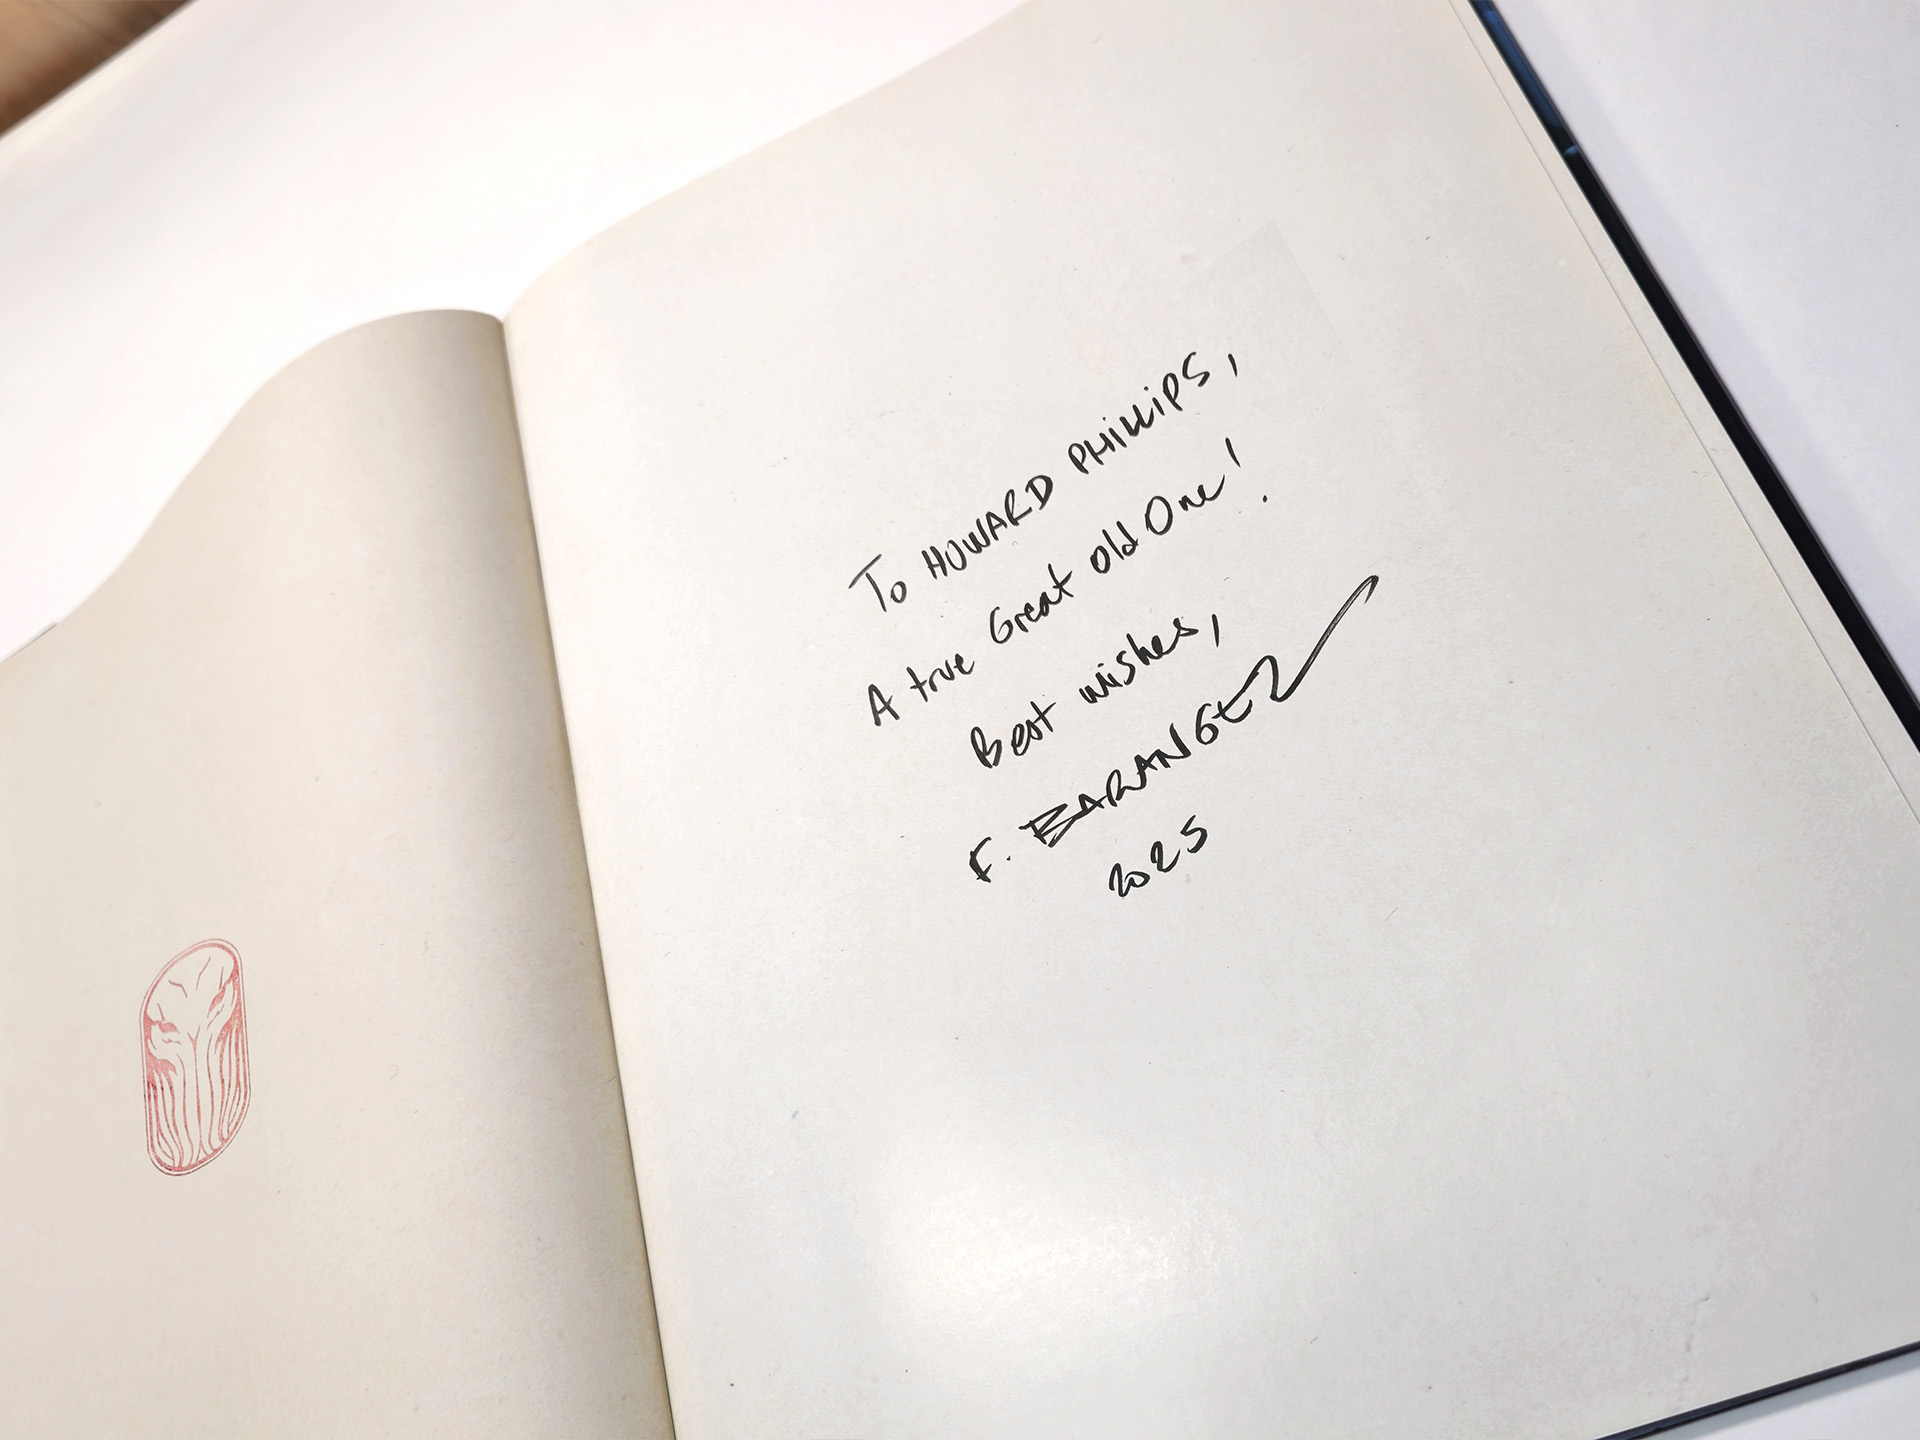 To HOWARD PHILLIPS,
A true Great old One!
Best wishes,
F. BARANGER
2025